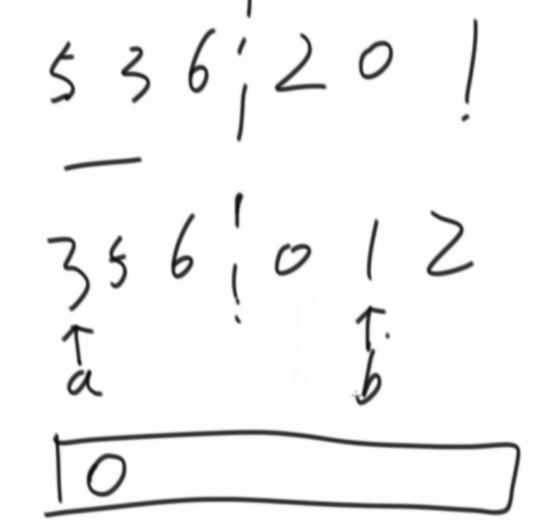 5 3 6 2 0 1
3 5 6 0 1 2
a b
0